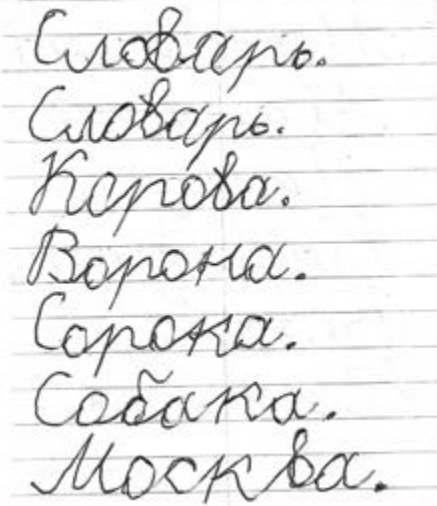 Словарь.
Словарь.
Корова.
Ворона.
Сорока.
Собака.
Москва.